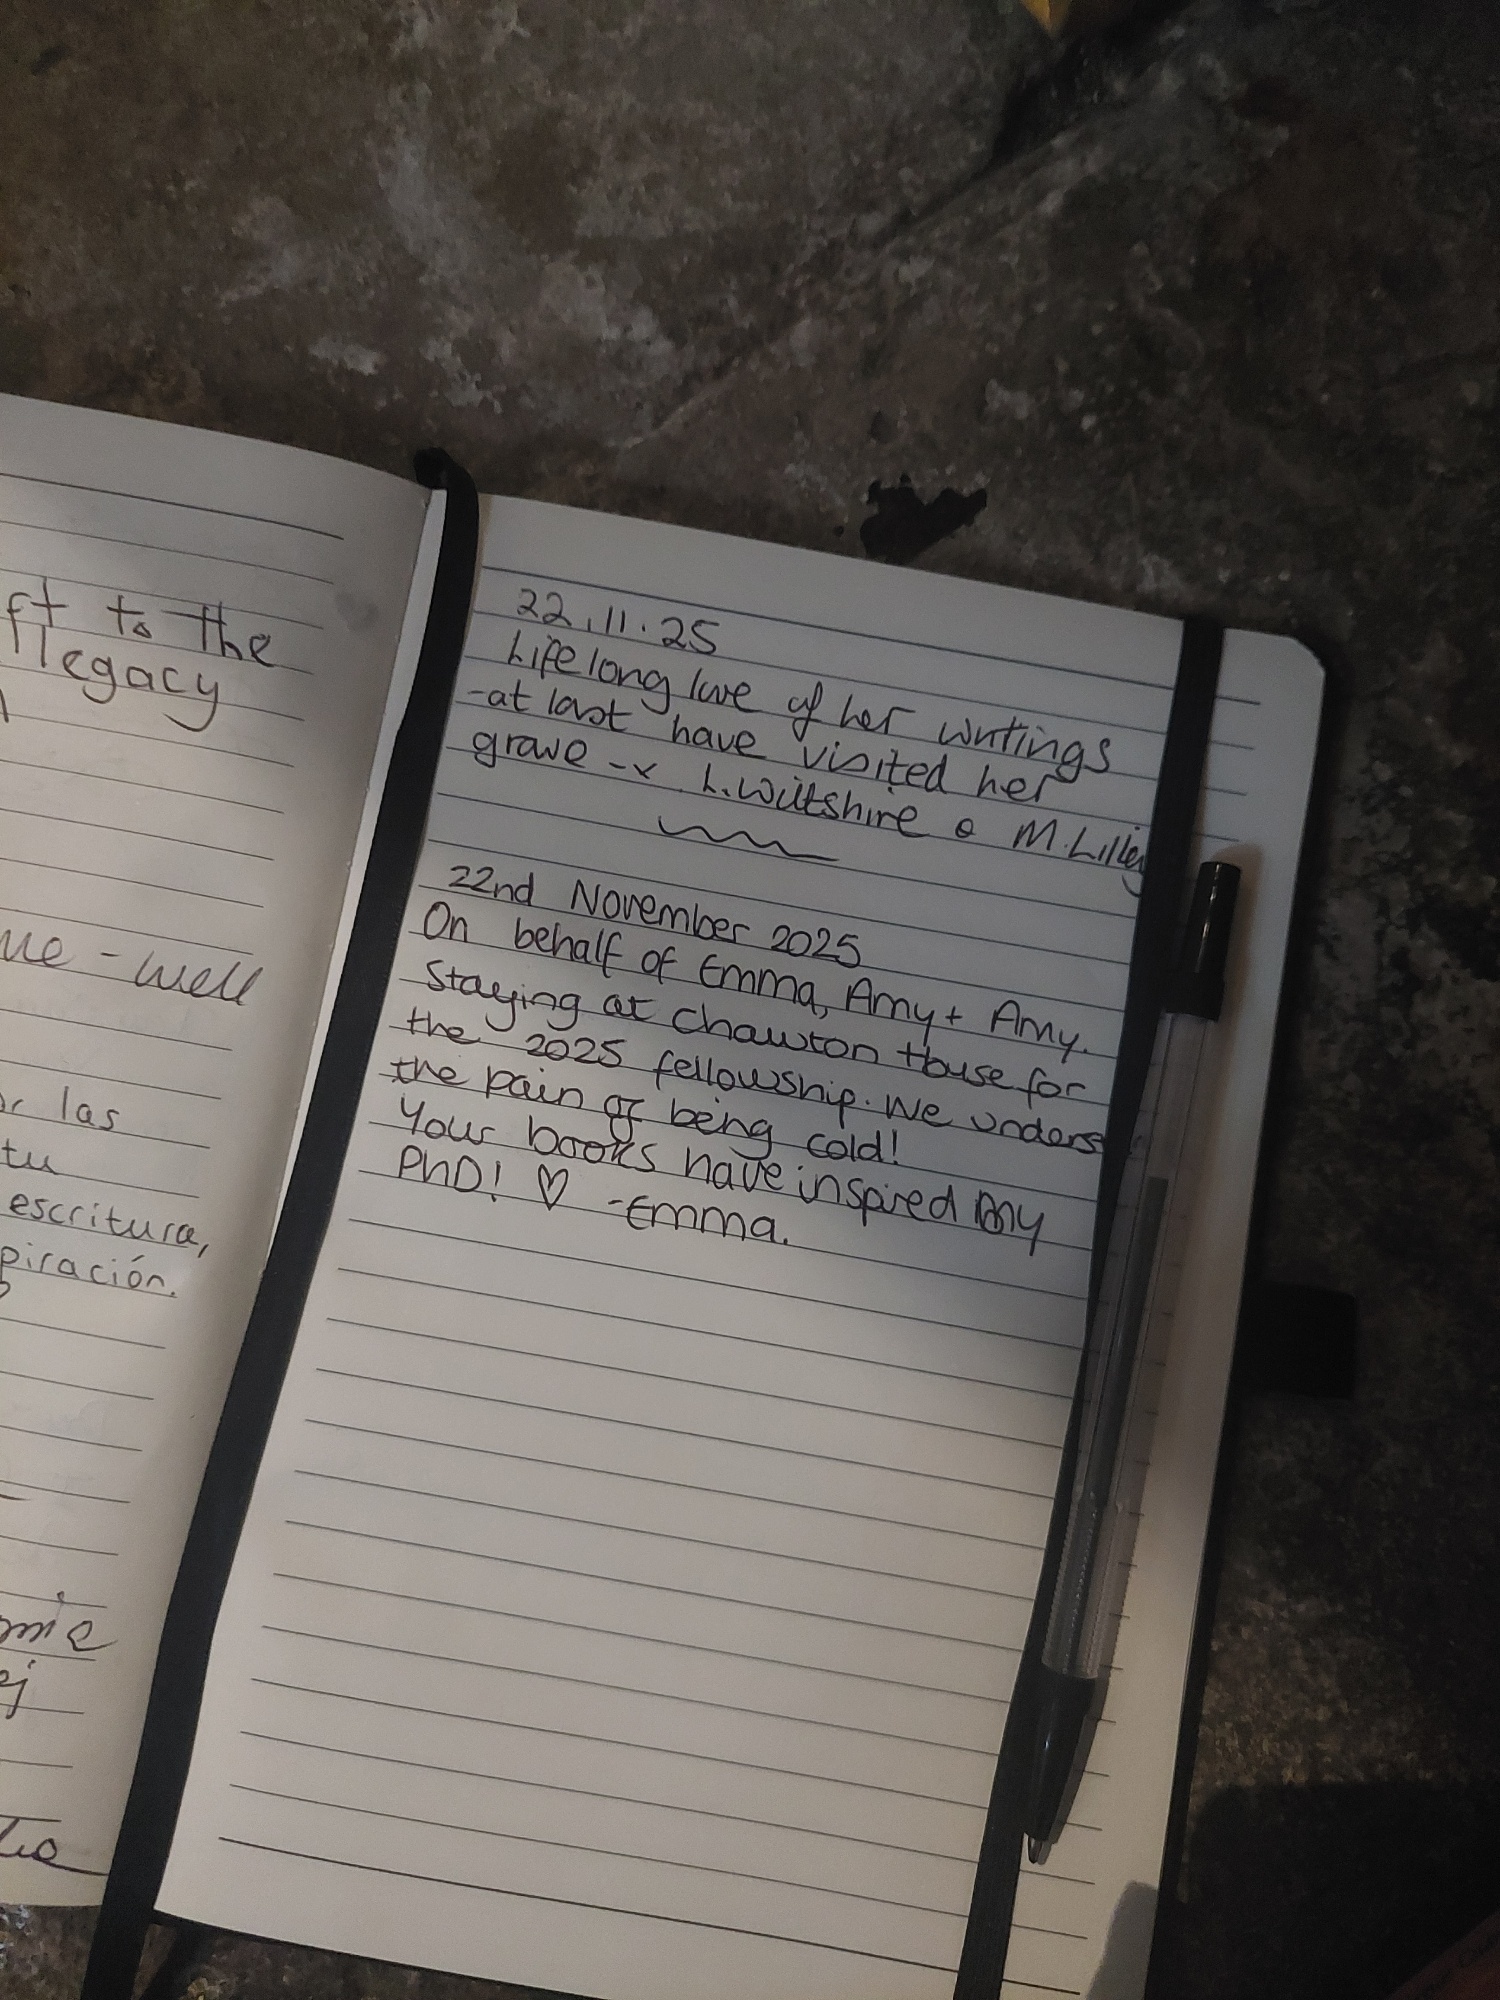 ft to the
legacy
ue - well
las
tu
escritura,
piración.
22.11.25
Lifelong love of her writings
-at last have visited her
grave -x L.Wiltshire & M.Lilley
22nd November 2025
On behalf of Emma, Amy + Amy.
Staying at Chawton House for
the 2025 fellowship. We unders
the pain of being cold!
Your books have inspired my
PhD! ♡ -Emma.